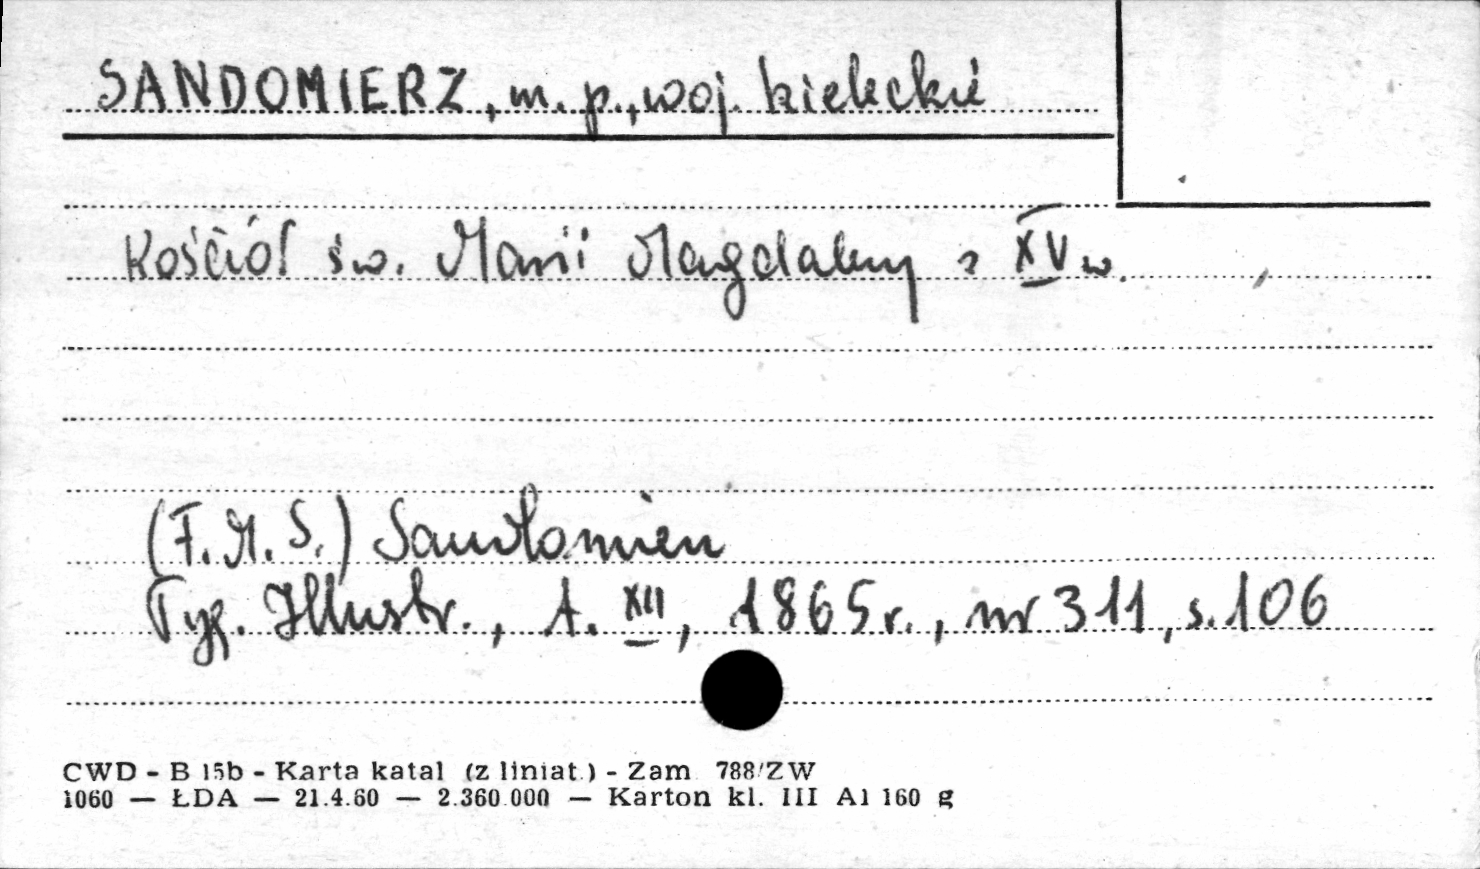 SANDOMIERZ, m. p., woj. kieleckie
Kościół św. Marii Magdaleny z XV w.
(F. M. S.) Sandomierz
Tyg. Illustr., t. XII, 1865 r., nr 311, s. 106
CWD - B 15b - Karta katal (z liniat.) - Zam 788/ZW
1060 — ŁDA — 21.4.60 — 2.360.000 — Karton kl. III A1 160 g